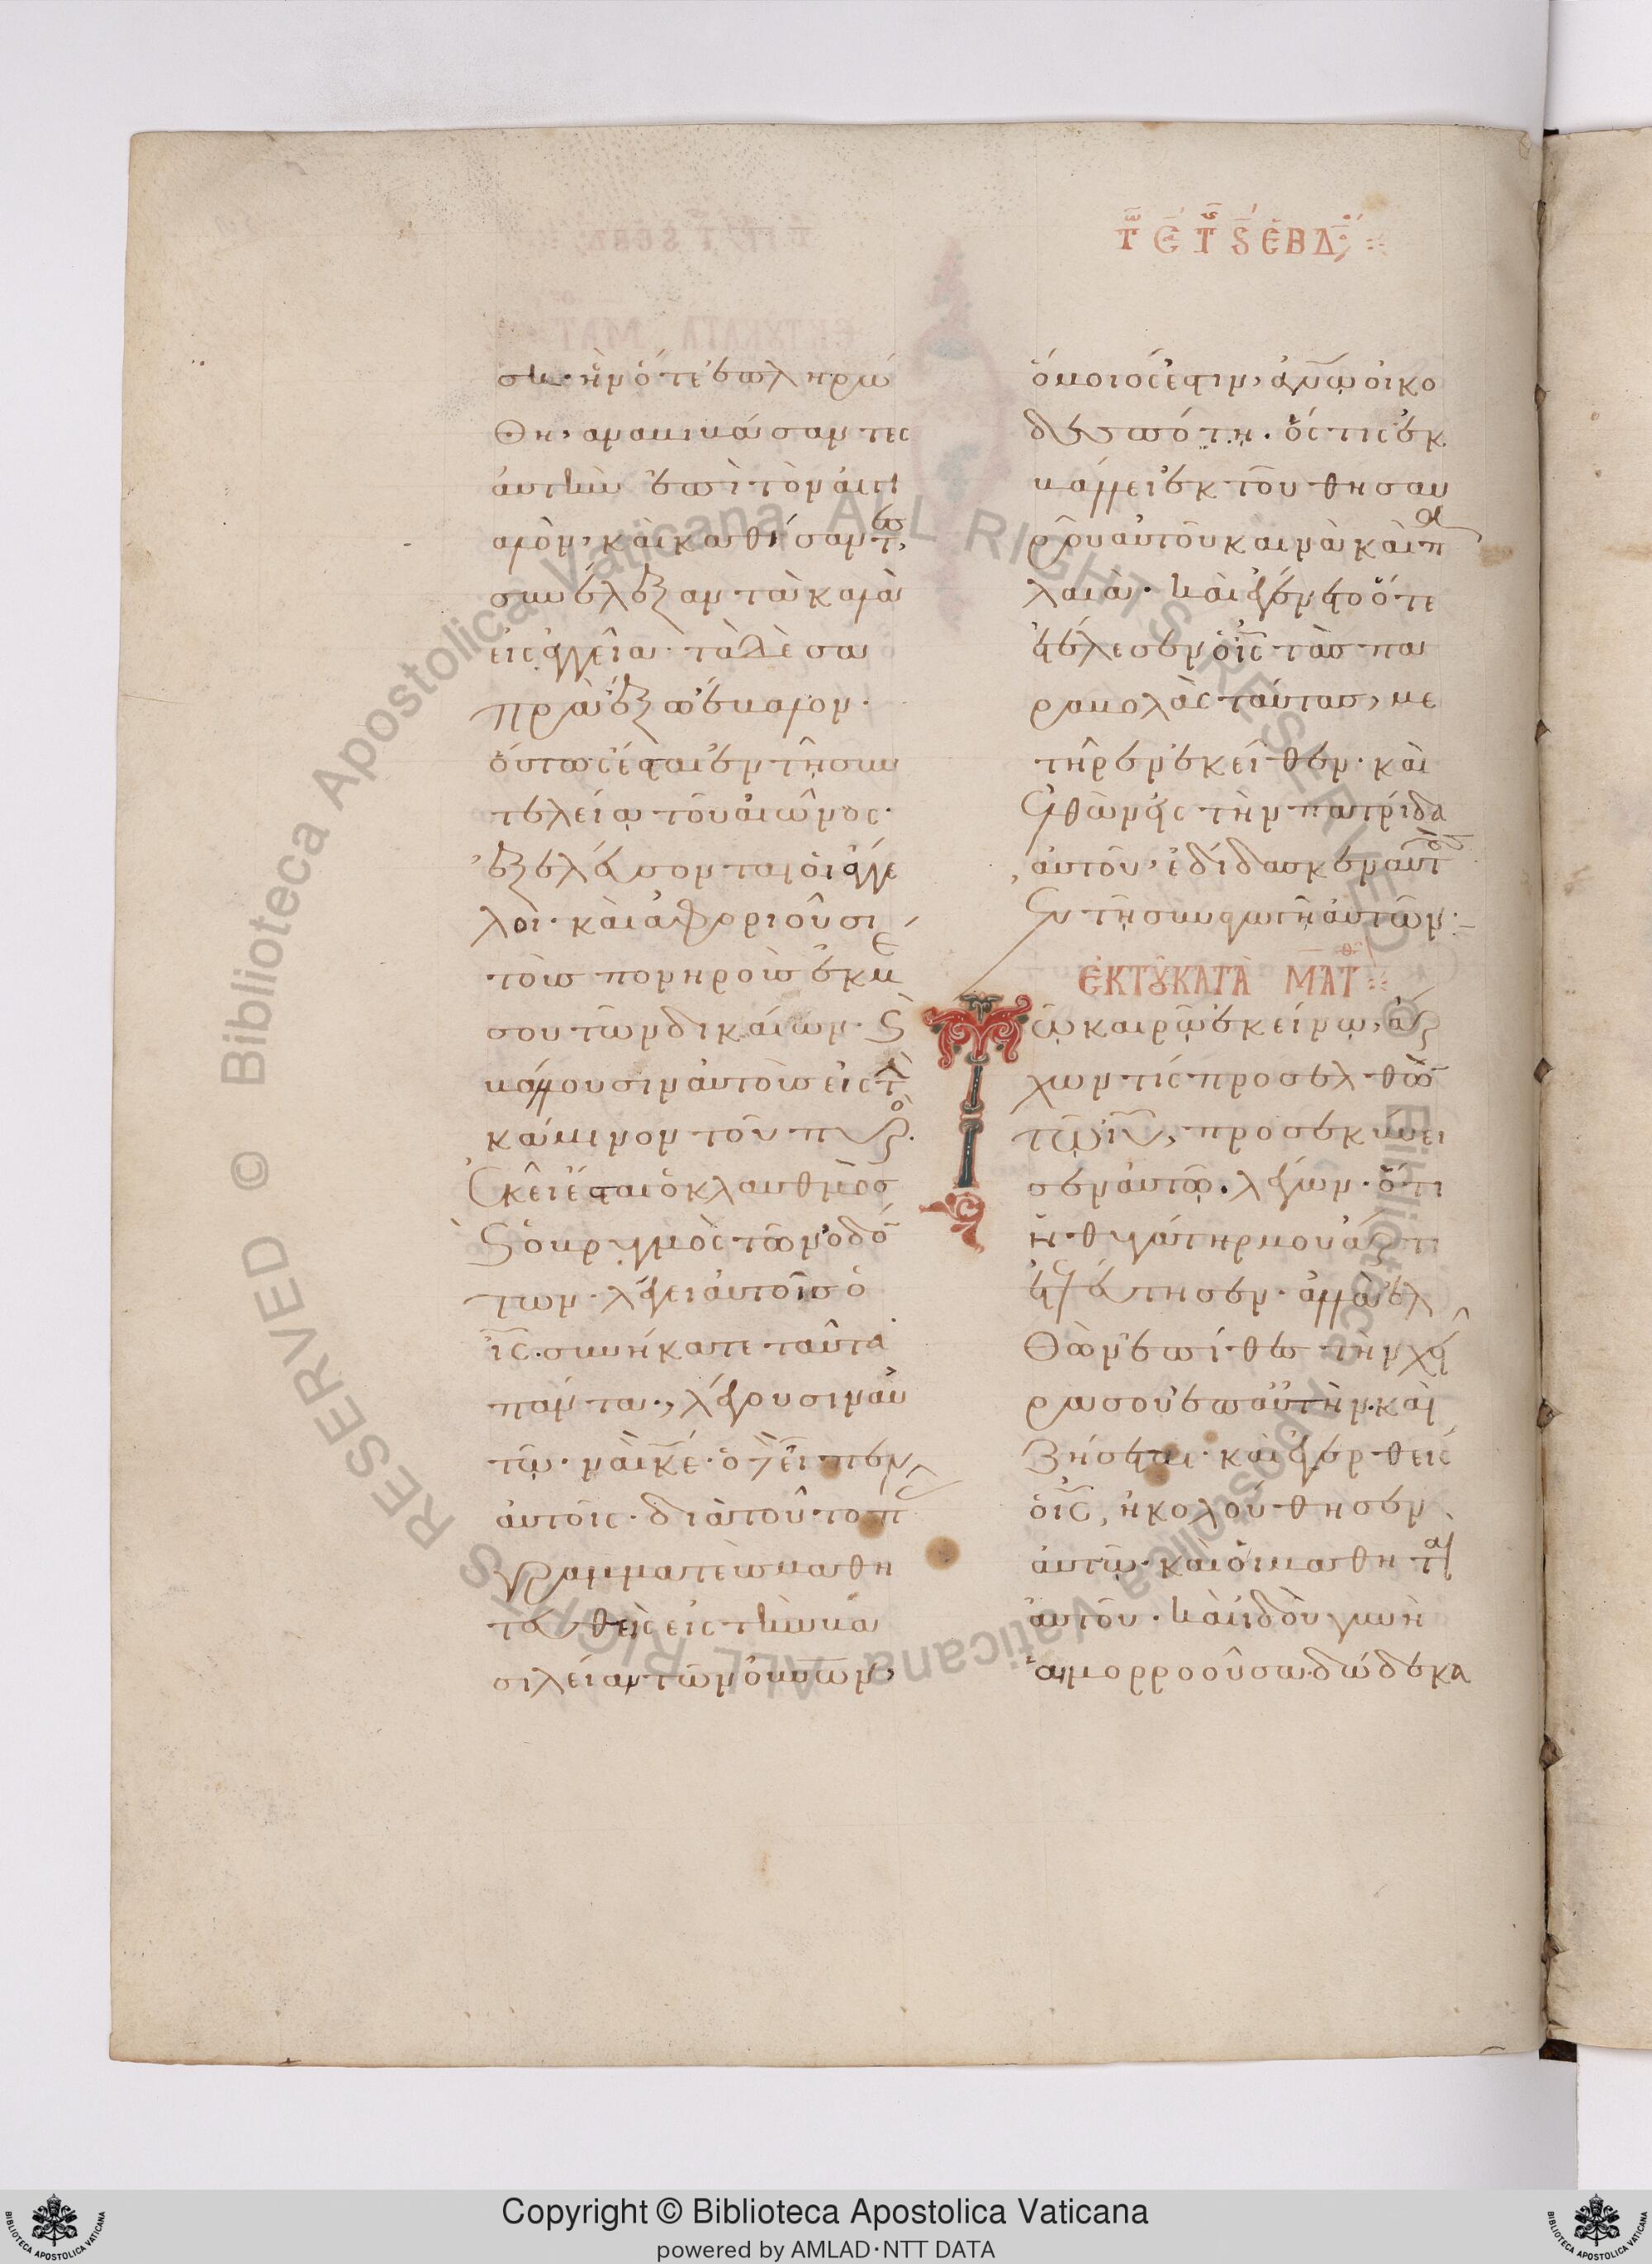 Τῶ Ε Τῆς S ΕΒΔ
ση· ἣν ὅτε ἐπληρώ
θη, ἀναβιβάσαντες
αὐτὴν ἐπὶ τὸν αἰγι
αλὸν, καὶ καθίσαντες,
συνέλεξαν τὰ καλὰ
εἰς ἀγγεῖα· τὰ δὲ σα
πρὰ ἔξω ἔβαλον·
οὕτως ἔσται ἐν τῆ συν
τελεία τοῦ αἰῶνος·
ἐξελεύσονται οἱ ἄγγε
λοι· καὶ ἀφοριοῦσι
τοὺς πονηροὺς ἐκ μέ
σου τῶν δικαίων· καὶ
βαλοῦσιν αὐτοὺς εἰς τὴν
κάμινον τοῦ πυρός·
Ἐκεῖ ἔσται ὁ κλαυθμὸς
καὶ ὁ βρυγμὸς τῶν ὀδόν
των· λέγει αὐτοῖς ὁ
ις· συνήκατε ταῦτα
πάντα, λέγουσιν αὐ
τῶ· ναὶ κε· ὁ δὲ εἶπεν
αὐτοῖς· διὰ τοῦτο π
γραμματεὺς μαθη
τευθεὶς εἰς τὴν βα
σιλείαν τῶν ουνων,
ὅμοιός ἐστιν, ανω οἰκο
δεσπότη· ὅς τις ἐκ
βάλλει ἐκ τοῦ θησαυ
ροῦ αὐτοῦ καινὰ καὶ πα
λαιά· καὶ ἐγένετο ὅτε
ἐτέλεσεν ὁ ις τὰς πα
ραβολὰς ταύτας, με
τῆρεν ἐκεῖθεν· καὶ
ἐλθὼν εἰς τὴν πατρίδα
αὐτοῦ, ἐδίδασκεν αὐτοὺς
ἐν τῆ συναγωγῆ αὐτῶν·
ἘΚ ΤΟΥ ΚΑΤᾺ ΜΑΤΘ
Τῶ καιρῶ ἐκείνω, ἄρ
χων τὶς προσελθὼν
τῶ ιυ, προσεκύνει
σεν αὐτῶ· λέγων· ὅτι
ἡ θυγάτηρ μου ἄρτι
ἐτελεύτησεν· ἀλλὰ ἐλ
θὼν ἐπίθες τὴν χεῖ
ρα σου ἐπ αὐτὴν· καὶ
ζήσεται· καὶ ἐγερθεὶς
ὁ ις, ἠκολούθησεν
αὐτῶ· καὶ οἱ μαθηταὶ
αὐτοῦ· καὶ ἰδοὺ γυνὴ
αἱμορροοῦσα δώδεκα
Copyright © Biblioteca Apostolica Vaticana
powered by AMLAD·NTT DATA